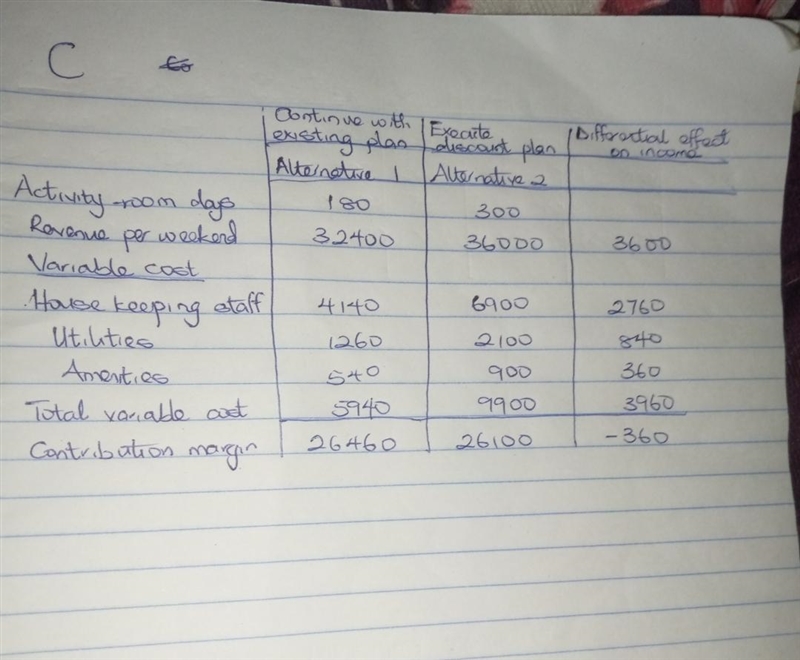 C
Continue with existing plan | Execute discount plan | Differential effect on income
Alternative 1 | Alternative 2
Activity-room days 180 300
Revenue per weekend 32400 36000 3600
Variable cost
House keeping staff 4140 6900 2760
Utilities 1260 2100 840
Amenties 540 900 360
Total variable cost 5940 9900 3960
Contribution margin 26460 26100 -360